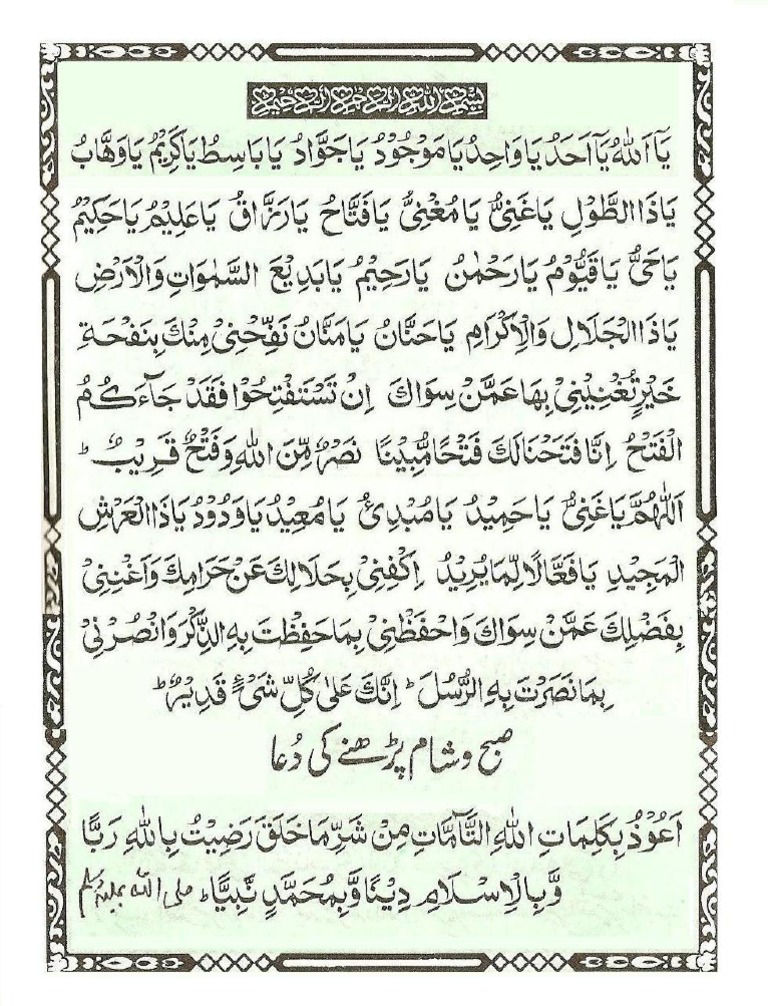 بِسْمِ اللهِ الرَّحْمٰنِ الرَّحِيْمِ
يَآ اَللهُ يَآ اَحَدُ يَا وَاحِدُ يَا مَوْجُوْدُ يَا جَوَّادُ يَا بَاسِطُ يَا كَرِيْمُ يَا وَهَّابُ
يَا ذَا الطَّوْلِ يَا غَنِيُّ يَا مُغْنِيُّ يَا فَتَّاحُ يَا رَزَّاقُ يَا عَلِيْمُ يَا حَكِيْمُ
يَا حَيُّ يَا قَيُّوْمُ يَا رَحْمٰنُ يَا رَحِيْمُ يَا بَدِيْعَ السَّمٰوَاتِ وَالْاَرْضِ
يَا ذَا الْجَلَالِ وَالْاِكْرَامِ يَا حَنَّانُ يَا مَنَّانُ نَفِّحْنِىْ مِنْكَ بِنَفْحَةِ
خَيْرٍ تُغْنِيْنِىْ بِهَا عَمَّنْ سِوَاكَ اِنْ تَسْتَفْتِحُوْا فَقَدْ جَآءَكُمُ
الْفَتْحُ اِنَّا فَتَحْنَا لَكَ فَتْحًا مُّبِيْنًا نَصْرٌ مِّنَ اللهِ وَفَتْحٌ قَرِيْبٌ ؕ
اَللّٰهُمَّ يَا غَنِيُّ يَا حَمِيْدُ يَا مُبْدِئُ يَا مُعِيْدُ يَا وَدُوْدُ يَا ذَا الْعَرْشِ
الْمَجِيْدِ يَا فَعَّالًا لِّمَا يُرِيْدُ اِكْفِنِىْ بِحَلَالِكَ عَنْ حَرَامِكَ وَاَغْنِنِىْ
بِفَضْلِكَ عَمَّنْ سِوَاكَ وَاحْفَظْنِىْ بِمَا حَفِظْتَ بِهِ الذِّكْرَ وَانْصُرْنِىْ
بِمَا نَصَرْتَ بِهِ الرُّسُلَ ؕ اِنَّكَ عَلٰى كُلِّ شَىْءٍ قَدِيْرٌ ؕ
صبح و شام پڑھنے کی دُعا
اَعُوْذُ بِكَلِمَاتِ اللهِ التَّآمَّاتِ مِنْ شَرِّ مَا خَلَقَ رَضِيْتُ بِاللهِ رَبًّا
وَّبِالْاِسْلَامِ دِيْنًا وَّبِمُحَمَّدٍ نَّبِيًّا ؕ صلی اللہ علیہ وسلم